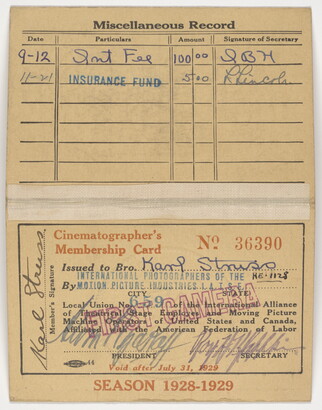 Miscellaneous Record
Date Particulars Amount Signature of Secretary
9-12 Int Fee 100 00
11-21 INSURANCE FUND 5.00 Lincoln
Cinematographer's
Membership Card No 36390
Issued to Bro. Karl Struss
INTERNATIONAL PHOTOGRAPHERS OF THE
By MOTION PICTURE INDUSTRIES
CITY STATE
Local Union No. 659 of the International Alliance
of Theatrical Stage Employes and Moving Picture
Machine Operators of United States and Canada,
Affiliated with the American Federation of Labor
PRESIDENT SECRETARY
Void after July 31, 1929
44
SEASON 1928-1929
Member's Signature
Karl Struss
FIRST CAMERA